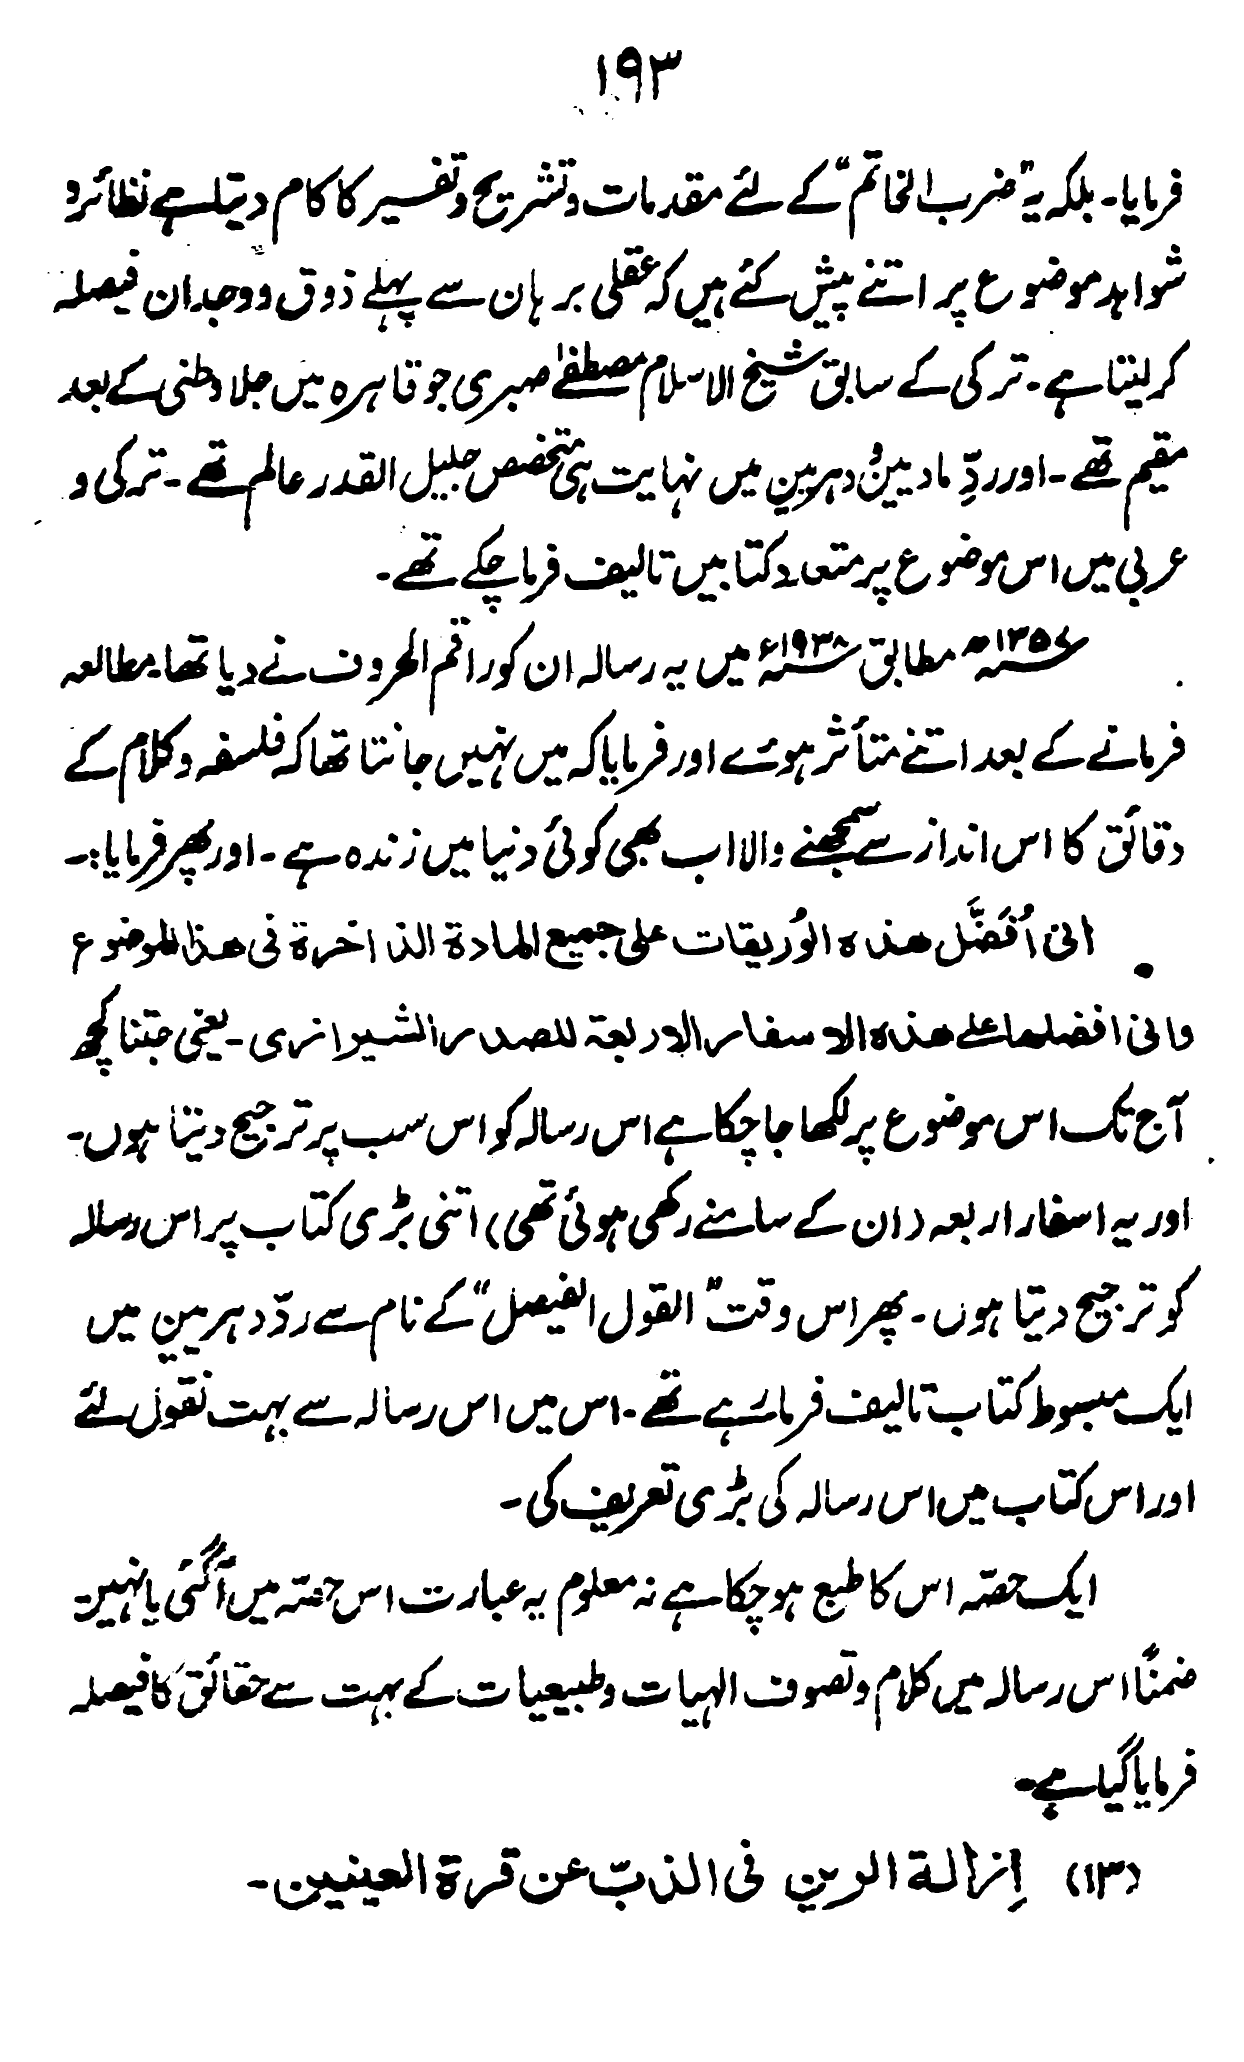 ۱۹۳
فرمایا۔ بلکہ یہ "ضرب الخاتم" کے لئے مقدمات وتشریح وتفسیر کا کام دیتا ہے نظائر و
شواہد موضوع پر اتنے پیش کئے ہیں کہ عقلی برہان سے پہلے ذوق ووجدان فیصلہ
کرلیتا ہے۔ ترکی کے سابق شیخ الاسلام مصطفےٰ صبری جو قاہرہ میں جلاوطنی کے بعد
مقیم تھے۔ اور ردِّ مادیینُ ودہریین میں نہایت ہی متخصص جلیل القدر عالم تھے۔ ترکی و
عربی میں اس موضوع پر متعدد کتابیں تالیف فرماچکے تھے۔
۱۳۵۷ھ مطابق ۱۹۳۸ء میں یہ رسالہ ان کو راقم الحروف نے دیا تھا۔ مطالعہ
فرمانے کے بعد اتنے متأثر ہوئے اور فرمایا کہ میں نہیں جانتا تھا کہ فلسفہ وکلام کے
دقائق کا اس انداز سے سمجھنے والا اب بھی کوئی دنیا میں زندہ ہے۔ اور پھر فرمایا:۔
انی اُفَضِّل هذه الوُریقات علی جمیع المادة الذاخرة فی هذالموضوع
وانی افضلها علے هذه الاسفار الاربعة للصدر الشیرازی۔ یعنی جتنا کچھ
آج تک اس موضوع پر لکھا جاچکا ہے اس رسالہ کو اس سب پر ترجیح دیتا ہوں۔
اور یہ اسفار اربعہ (ان کے سامنے رکھی ہوئی تھی) اتنی بڑی کتاب پر اس رسالہ
کو ترجیح دیتا ہوں۔ پھر اس وقت "القول الفیصل" کے نام سے ردّ دہریین میں
ایک مبسوط کتاب تالیف فرمارہے تھے۔ اس میں اس رسالہ سے بہت نقول لئے
اور اس کتاب میں اس رسالہ کی بڑی تعریف کی۔
ایک حصّہ اس کا طبع ہوچکا ہے نہ معلوم یہ عبارت اس حصّہ میں آگئی یا نہیں۔
ضمناً اس رسالہ میں کلام وتصوف الہیات وطبیعیات کے بہت سے حقائق کا فیصلہ
فرمایا گیا ہے۔
(۱۳) اِزالة الرین فی الذبّ عن قرة العینین۔